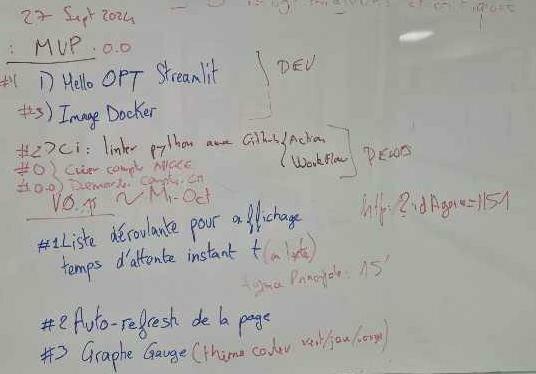 27 Sept 2024
: MVP 0.0
#1 1) Hello OPT Streamlit } DEV
#3) Image Docker
#2) Ci: linter python avec Github { Action
Workflow ] DEVOPS
#0) Créer compte
#0.0) Demande compte
V0.1 ~ Mi-Oct
http: ?idAgence=1151
#1 Liste déroulante pour affichage
temps d'attente instant t (liste)
Principale: 15'
#2 Auto-refresh de la page
#3 Graphe Gauge (thème couleur vert/jau/rouge)